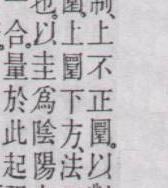 制、上不正圜。以
圜、上圜下方、法
也。以圭爲陰陽
合。量於此起